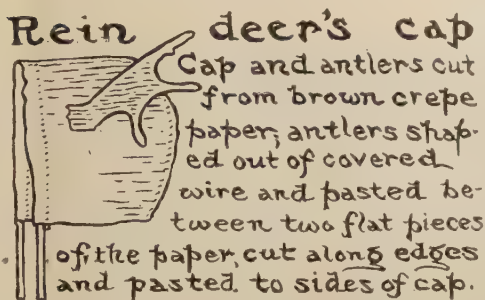 Rein deer's cap
Cap and antlers cut
from brown crepe
paper; antlers shap-
ed out of covered
wire and pasted be-
tween two flat pieces
of the paper, cut along edges
and pasted to sides of cap.